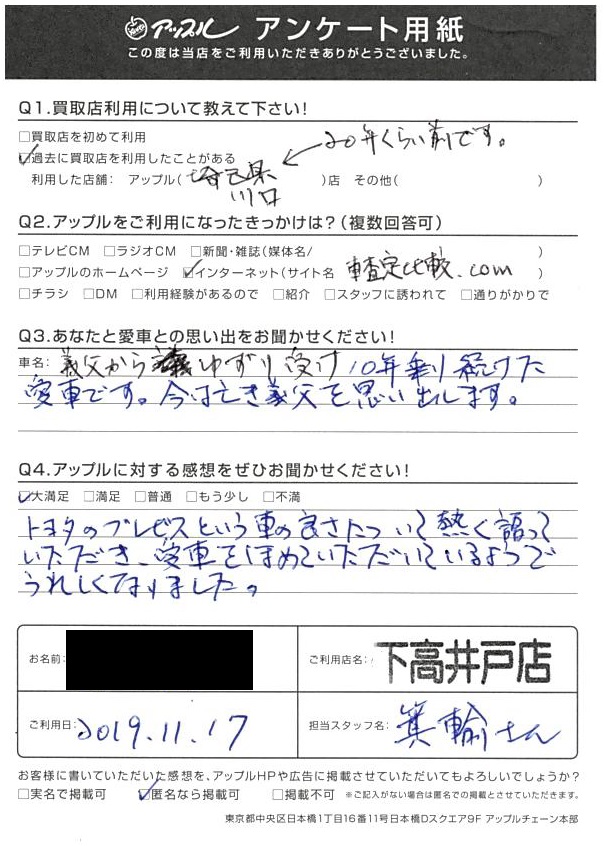 アップル アンケート用紙
この度は当店をご利用いただきありがとうございました。
Q1.買取店利用について教えて下さい!
□買取店を初めて利用
20年くらい前です。
☑過去に買取店を利用したことがある
利用した店舗: アップル( 埼玉県川口 )店 その他( )
Q2.アップルをご利用になったきっかけは?(複数回答可)
□テレビCM □ラジオCM □新聞・雑誌(媒体名/ )
□アップルのホームページ ☑インターネット(サイト名 車査定比較.com )
□チラシ □DM □利用経験があるので □紹介 □スタッフに誘われて □通りがかりで
Q3.あなたと愛車との思い出をお聞かせください!
車名: 義父から ゆずり受け 10年乗り続けた
愛車です。今は亡き義父を思い出します。
Q4.アップルに対する感想をぜひお聞かせください!
☑大満足 □満足 □普通 □もう少し □不満
トヨタのブレビスという車の良さについて熱く語って
いただき、愛車をほめていただいているようで
うれしくなりました。
お名前:
ご利用店名: 下高井戸店
ご利用日: 2019.11.17
担当スタッフ名: 箕輪さん
お客様に書いていただいた感想を、アップルHPや広告に掲載させていただいてもよろしいでしょうか?
□実名で掲載可 ☑匿名なら掲載可 □掲載不可 ※ご記入がない場合は匿名での掲載とさせていただきます。
東京都中央区日本橋1丁目16番11号日本橋Dスクエア9F アップルチェーン本部